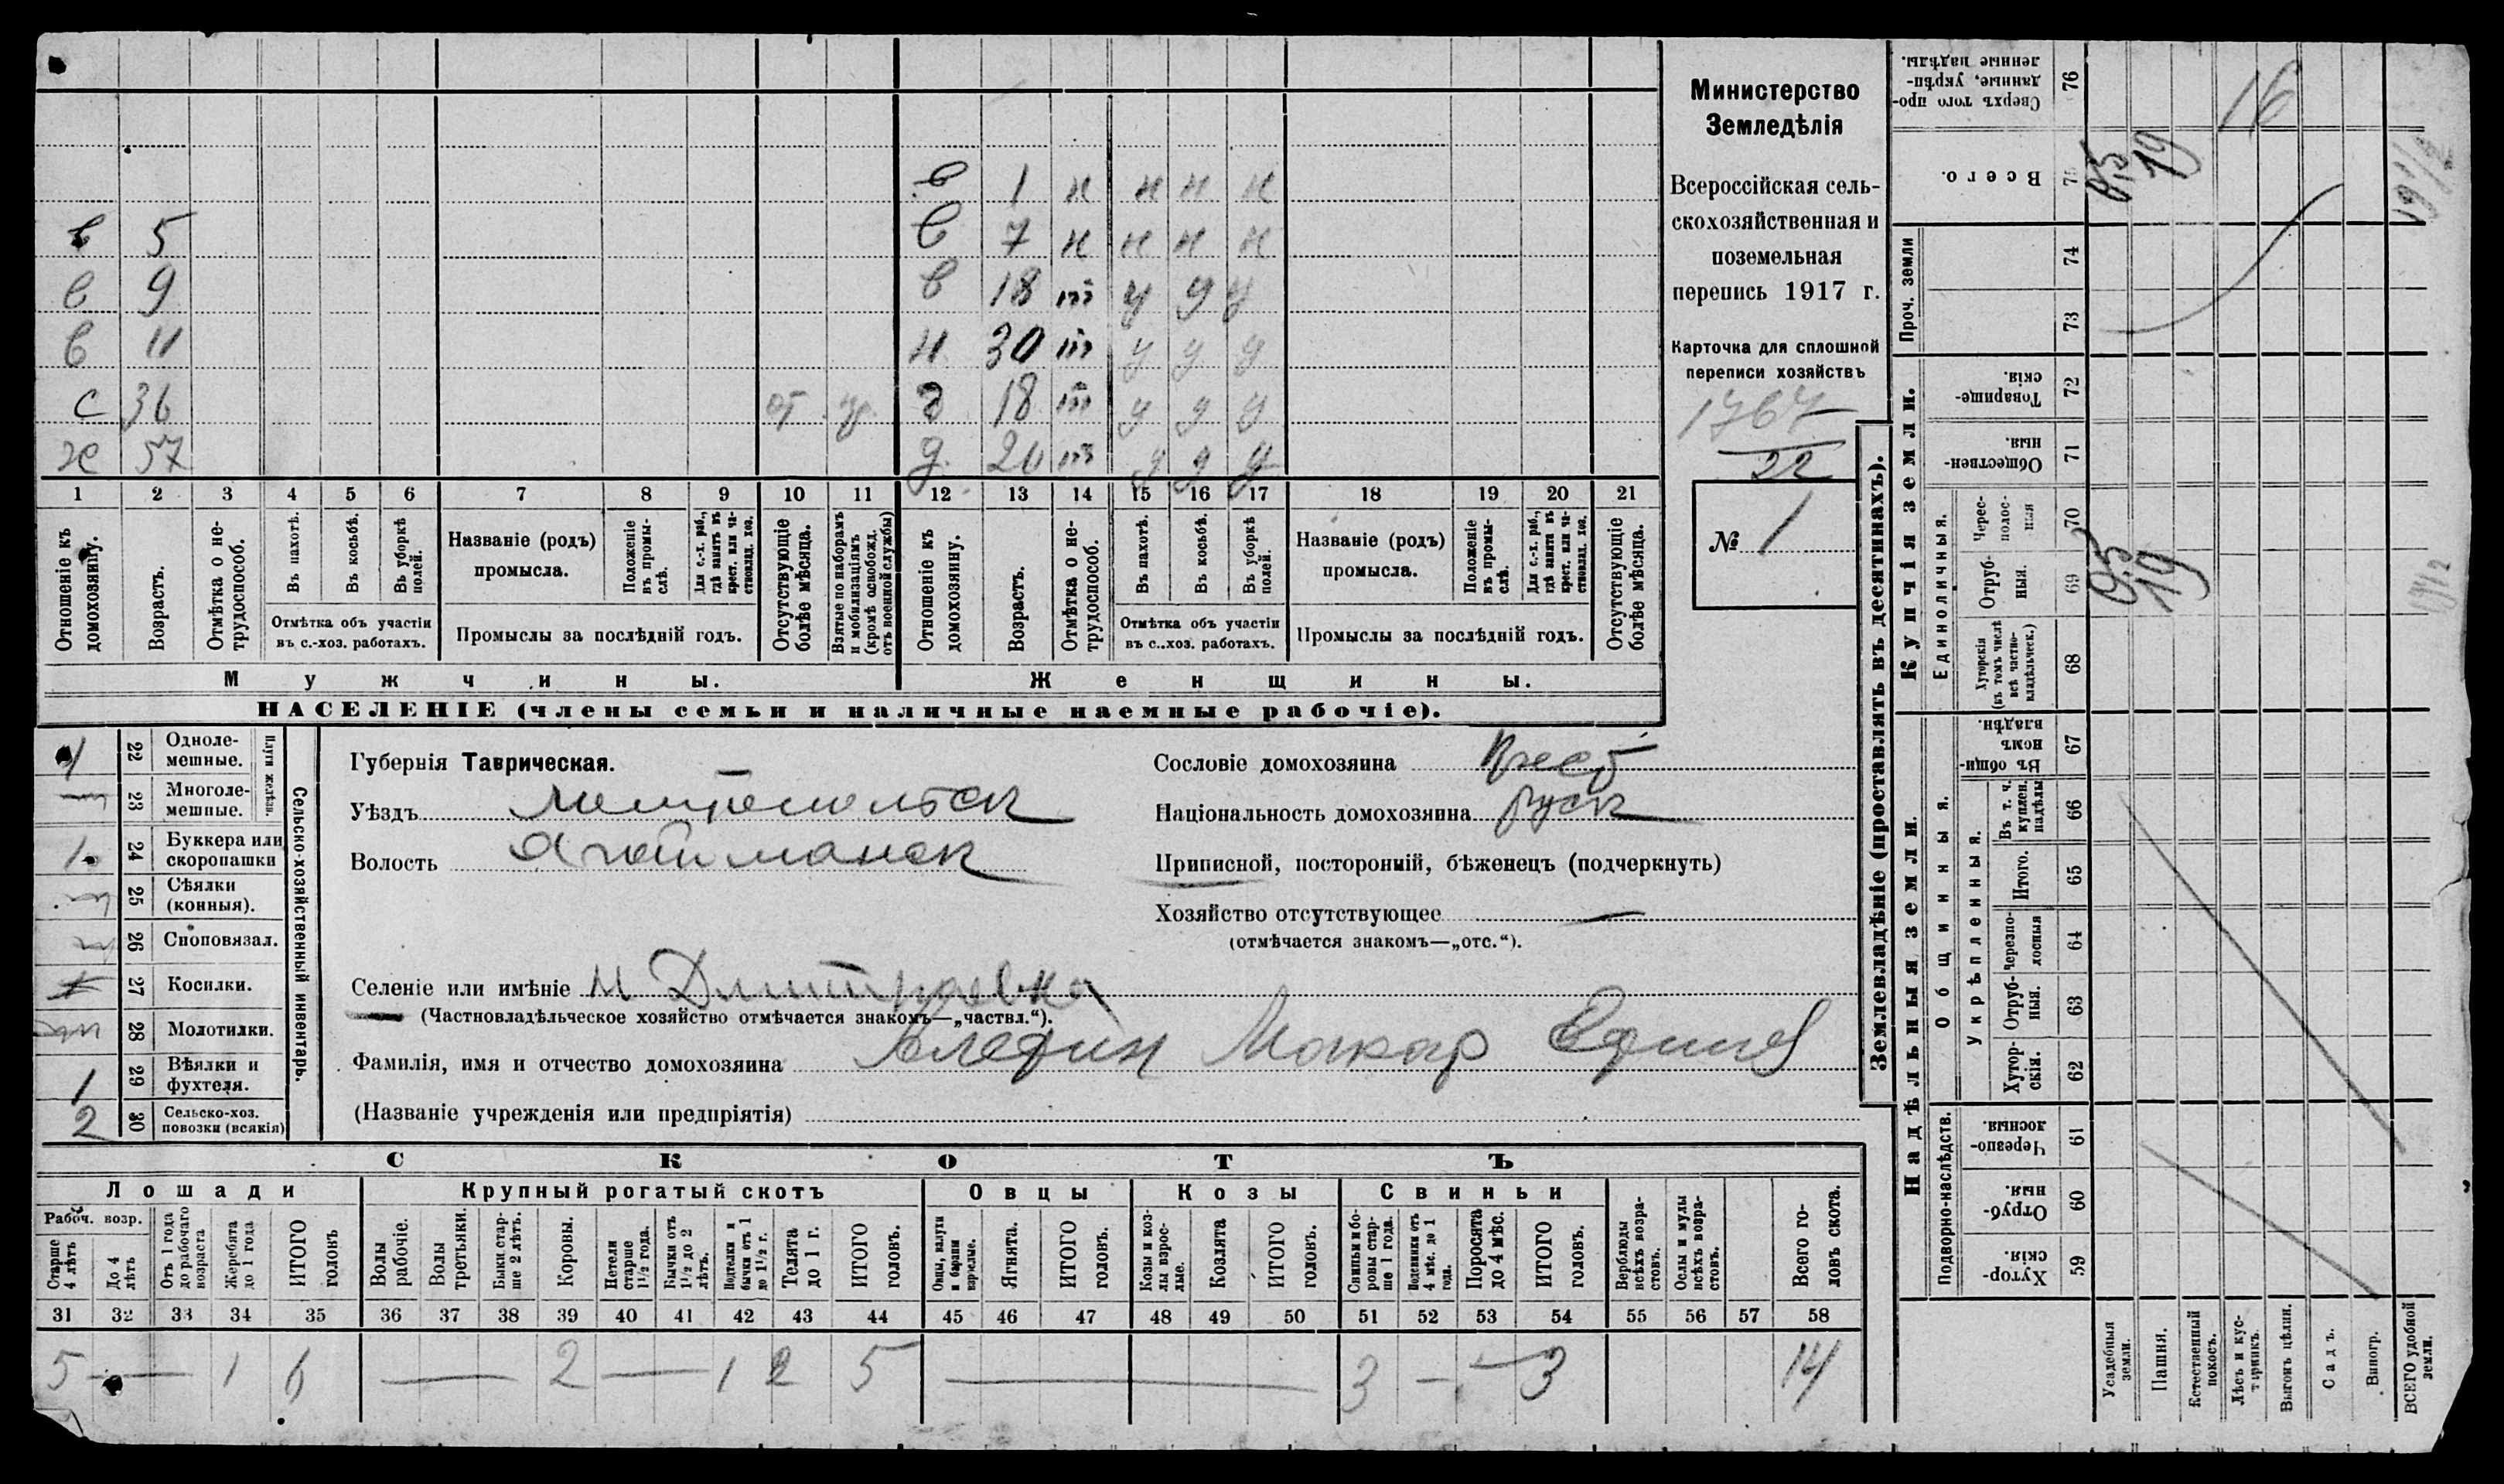 Министерство
Земледѣлія
Всероссійская сель-
скохозяйственная и
поземельная
перепись 1917 г.
Карточка для сплошной
переписи хозяйствъ
1767
22
№ 1
в 1 н н н н
в 5 в 7 н н н н
в 9 в 18 у у у
в 11 н 30 у у у
с 36 д 18 у у у
ж 57 д 20 у у у
1 2 3 4 5 6 7 8 9 10 11 12 13 14 15 16 17 18 19 20 21
Отношеніе къ домохозяину.
Возрастъ.
Отмѣтка о не-трудоспособ.
Въ пахотѣ.
Въ косьбѣ.
Въ уборкѣ полей.
Отмѣтка объ участіи въ с.-хоз. работахъ.
Названіе (родъ) промысла.
Положеніе въ промы-слѣ.
Для с.-х. раб., гдѣ занятъ въ крест. или ча-стновлад. хоз.
Промыслы за послѣдній годъ.
Отсутствующіе болѣе мѣсяца.
Взятые по наборамъ и мобилизаціямъ (кромѣ освобожд. отъ военной службы)
Отношеніе къ домохозяину.
Возрастъ.
Отмѣтка о не-трудоспособ.
Въ пахотѣ.
Въ косьбѣ.
Въ уборкѣ полей.
Отмѣтка объ участіи въ с..хоз. работахъ.
Названіе (родъ) промысла.
Положеніе въ промы-слѣ.
Для с.-х. раб., гдѣ занята въ крест. или ча-стновлад. хоз.
Промыслы за послѣдній годъ.
Отсутствующіе болѣе мѣсяца.
Мужчины.
Женщины.
НАСЕЛЕНІЕ (члены семьи и наличные наемные рабочіе).
1 22 Одноле-мешные.
Плуги желѣзн.
23 Многоле-мешные.
1 24 Буккера или скоропашки
25 Сѣялки (конныя).
26 Сноповязал.
27 Косилки.
28 Молотилки.
1 29 Вѣялки и фухтеля.
2 30 Сельско-хоз. повозки (всякія)
Сельско-хозяйственный инвентарь.
Губернія Таврическая.
Уѣздъ Мелитопольск
Волость Агайманск
Селеніе или имѣніе Дмитриевка
(Частновладѣльческое хозяйство отмѣчается знакомъ—„частвл.“).
Фамилія, имя и отчество домохозяина Макар
(Названіе учрежденія или предпріятія)
Сословіе домохозяина Крест
Національность домохозяина русск
Приписной, посторонній, бѣженецъ (подчеркнуть)
Хозяйство отсутствующее —
(отмѣчается знакомъ—„отс.“).
СКОТЪ
Лошади
Крупный рогатый скотъ
Овцы
Козы
Свиньи
Рабоч. возр.
Старше 4 лѣтъ
До 4 лѣтъ
Отъ 1 года до рабочаго возраста
Жеребята до 1 года
ИТОГО головъ
Волы рабочіе.
Волы третьяки.
Быки стар-ше 2 лѣтъ.
Коровы.
Нетели старше 1½ года.
Бычки отъ 1½ до 2 лѣтъ.
Подтелки и бычки отъ 1 до 1½ г.
Телята до 1 г.
ИТОГО головъ.
Овцы, валухи и бараны взрослые.
Ягнята.
ИТОГО головъ.
Козы и коз-лы взрос-лые.
Козлята
ИТОГО головъ.
Свиньи и бо-ровы стар-ше 1 года.
Подсвинки отъ 4 мѣс. до 1 года.
Поросята до 4 мѣс.
ИТОГО головъ.
Верблюды всѣхъ возра-стовъ.
Ослы и мулы всѣхъ возра-стовъ.
Всего го-ловъ скота.
31 32 33 34 35 36 37 38 39 40 41 42 43 44 45 46 47 48 49 50 51 52 53 54 55 56 57 58
5 — 1 6 — 2 — 1 2 5 — 3 — 3 14
Землевладѣніе (проставлять въ десятинахъ).
Купчія земли.
Проч. земли
Единоличныя.
Надѣльныя земли.
Общинныя.
Укрѣпленныя.
Подворно-наслѣдств.
Сверхъ того про-данные, укрѣп-ленные надѣлы. 76 16
Всего. 75 0,5 19 19 1/2
74
73
Товарище-скія. 72
Обществен-ныя. 71
Черес-полос-ныя 70
Отруб-ныя. 69 0,5 19 19 1/2
Хуторскія (въ томъ числѣ всѣ частно-владѣльческ.) 68
Въ общи-номъ владѣн. 67
Въ т. ч. куплен. надѣлы 66
Итого. 65
Черезпо-лосныя 64
Отруб-ныя. 63
Хутор-скія. 62
Черезпо-лосныя. 61
Отруб-ныя. 60
Хутор-скія. 59
Усадебныя земли.
Пашня.
Естественный покосъ.
Лѣсъ и кус-тарникъ.
Выгонъ цѣлин.
Садъ.
Виногр.
ВСЕГО удобной земли.